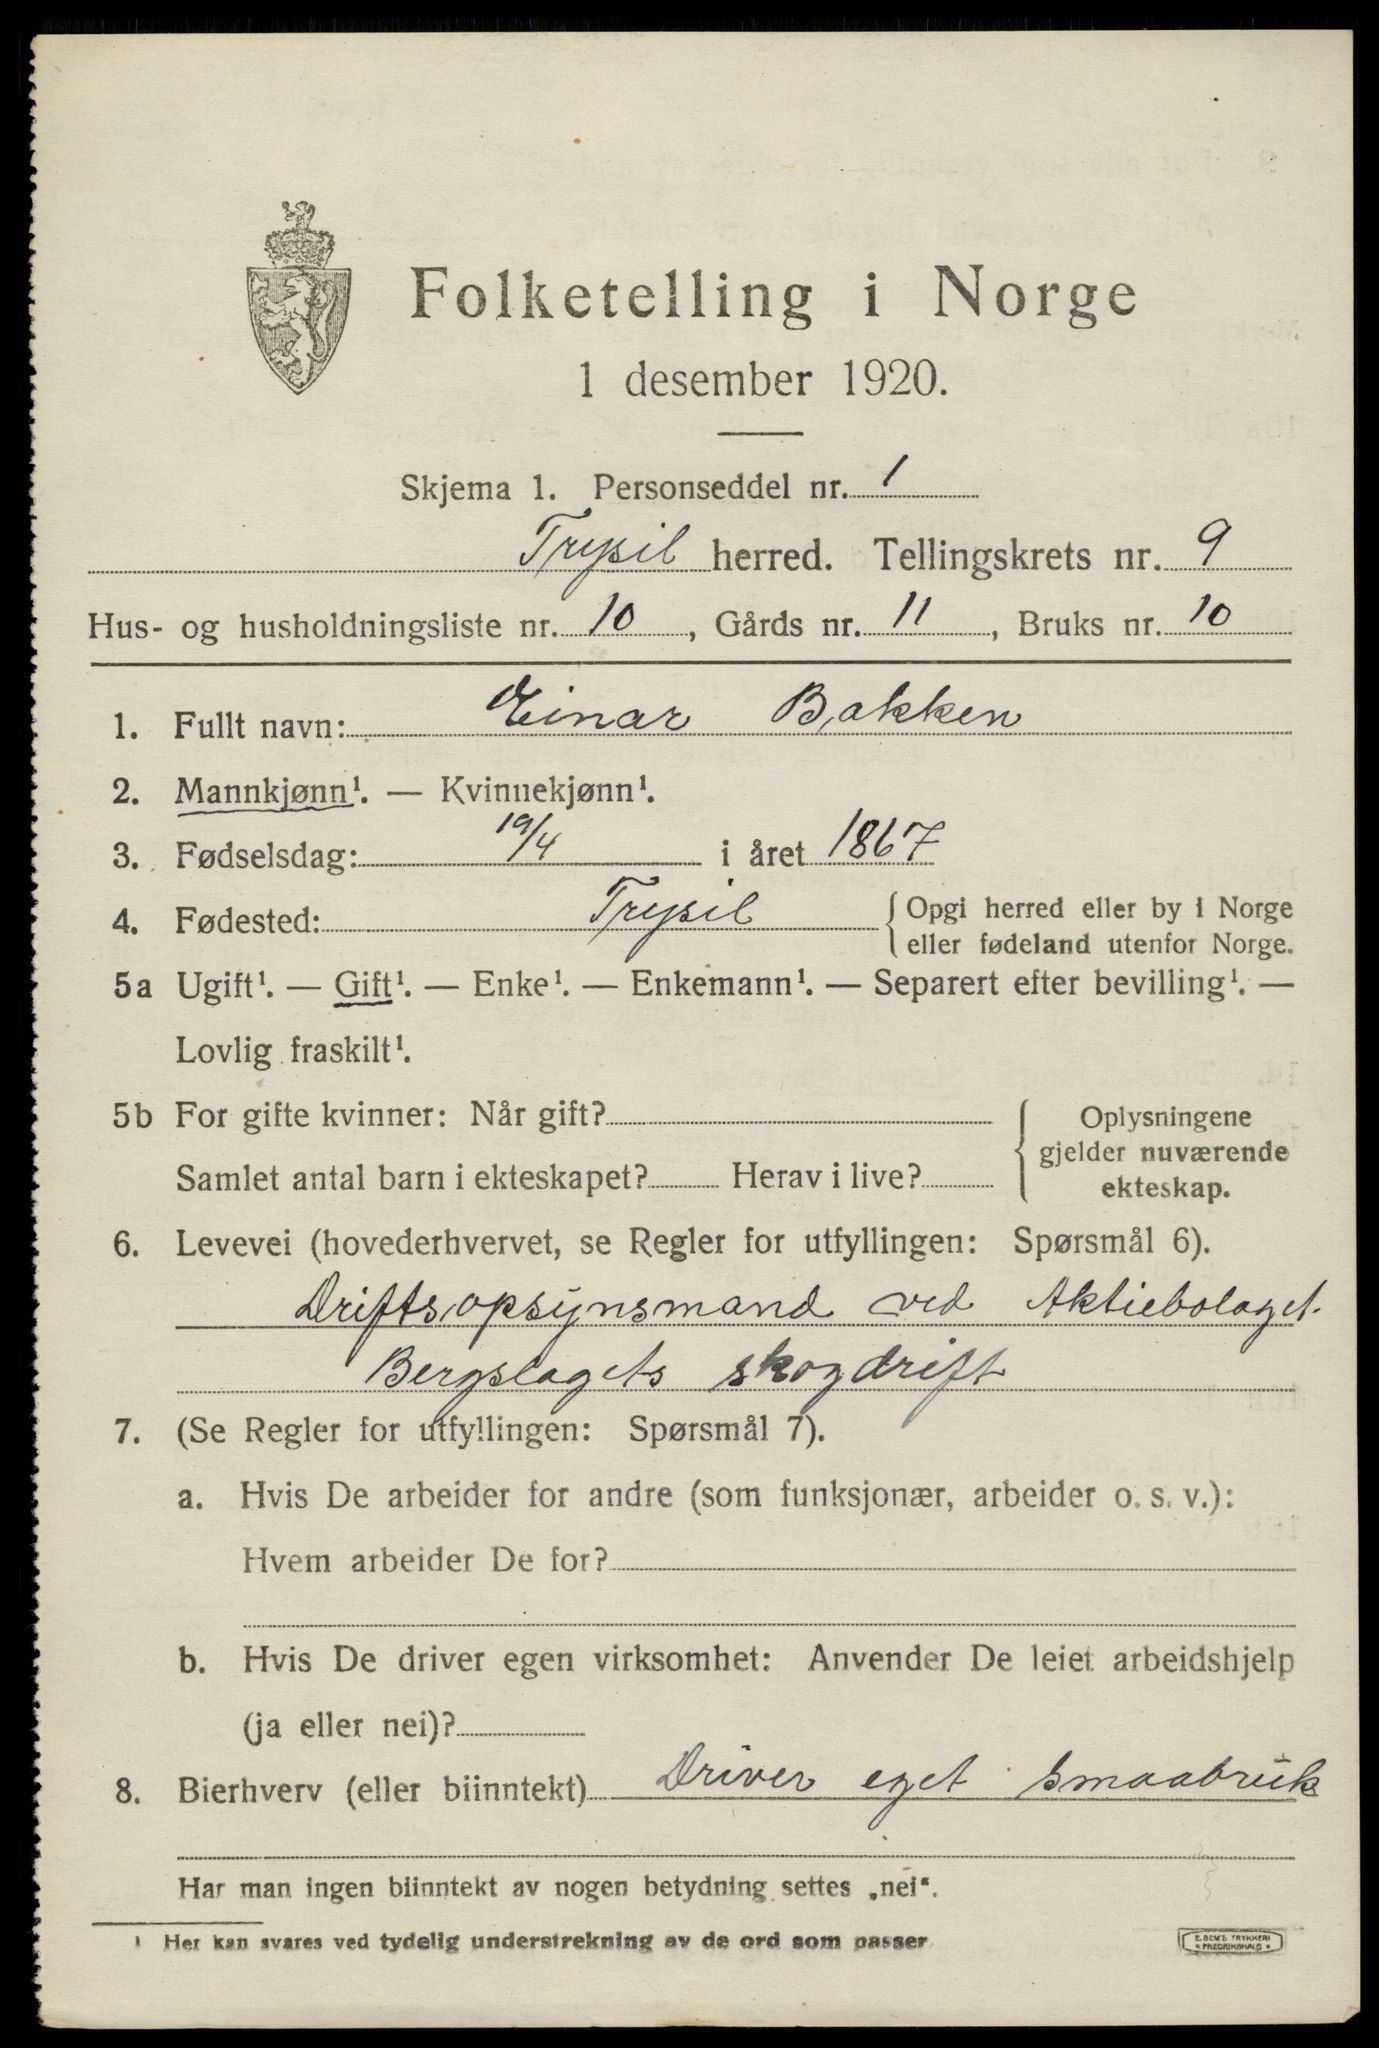 Folketelling i Norge
1 desember 1920.
Skjema 1. Personseddel nr. 1
Trysil herred. Tellingskrets nr. 9
Hus- og husholdningsliste nr. 10, Gårds nr. 11, Bruks nr. 10
1. Fullt navn: Einar Bakken
2. Mannkjønn¹. — Kvinnekjønn¹.
3. Fødselsdag: 19/4 i året 1867
4. Fødested: Trysil { Opgi herred eller by i Norge
eller fødeland utenfor Norge.
5a Ugift¹. — Gift¹. — Enke¹. — Enkemann¹. — Separert efter bevilling¹. —
Lovlig fraskilt¹.
5b For gifte kvinner: Når gift?
Samlet antal barn i ekteskapet? Herav i live?
{ Oplysningene
gjelder nuværende
ekteskap.
6. Levevei (hovederhvervet, se Regler for utfyllingen: Spørsmål 6).
Driftsopsynsmand ved Aktiebolaget
Bergslagets skogdrift
7. (Se Regler for utfyllingen: Spørsmål 7).
a. Hvis De arbeider for andre (som funksjonær, arbeider o. s. v.):
Hvem arbeider De for?
b. Hvis De driver egen virksomhet: Anvender De leiet arbeidshjelp
(ja eller nei)?
8. Bierhverv (eller biinntekt) Driver eget smaabruk
Har man ingen biinntekt av nogen betydning settes „nei“.
¹ Her kan svares ved tydelig understrekning av de ord som passer
E. SEM'S TRYKKERI
FREDRIKSHALD